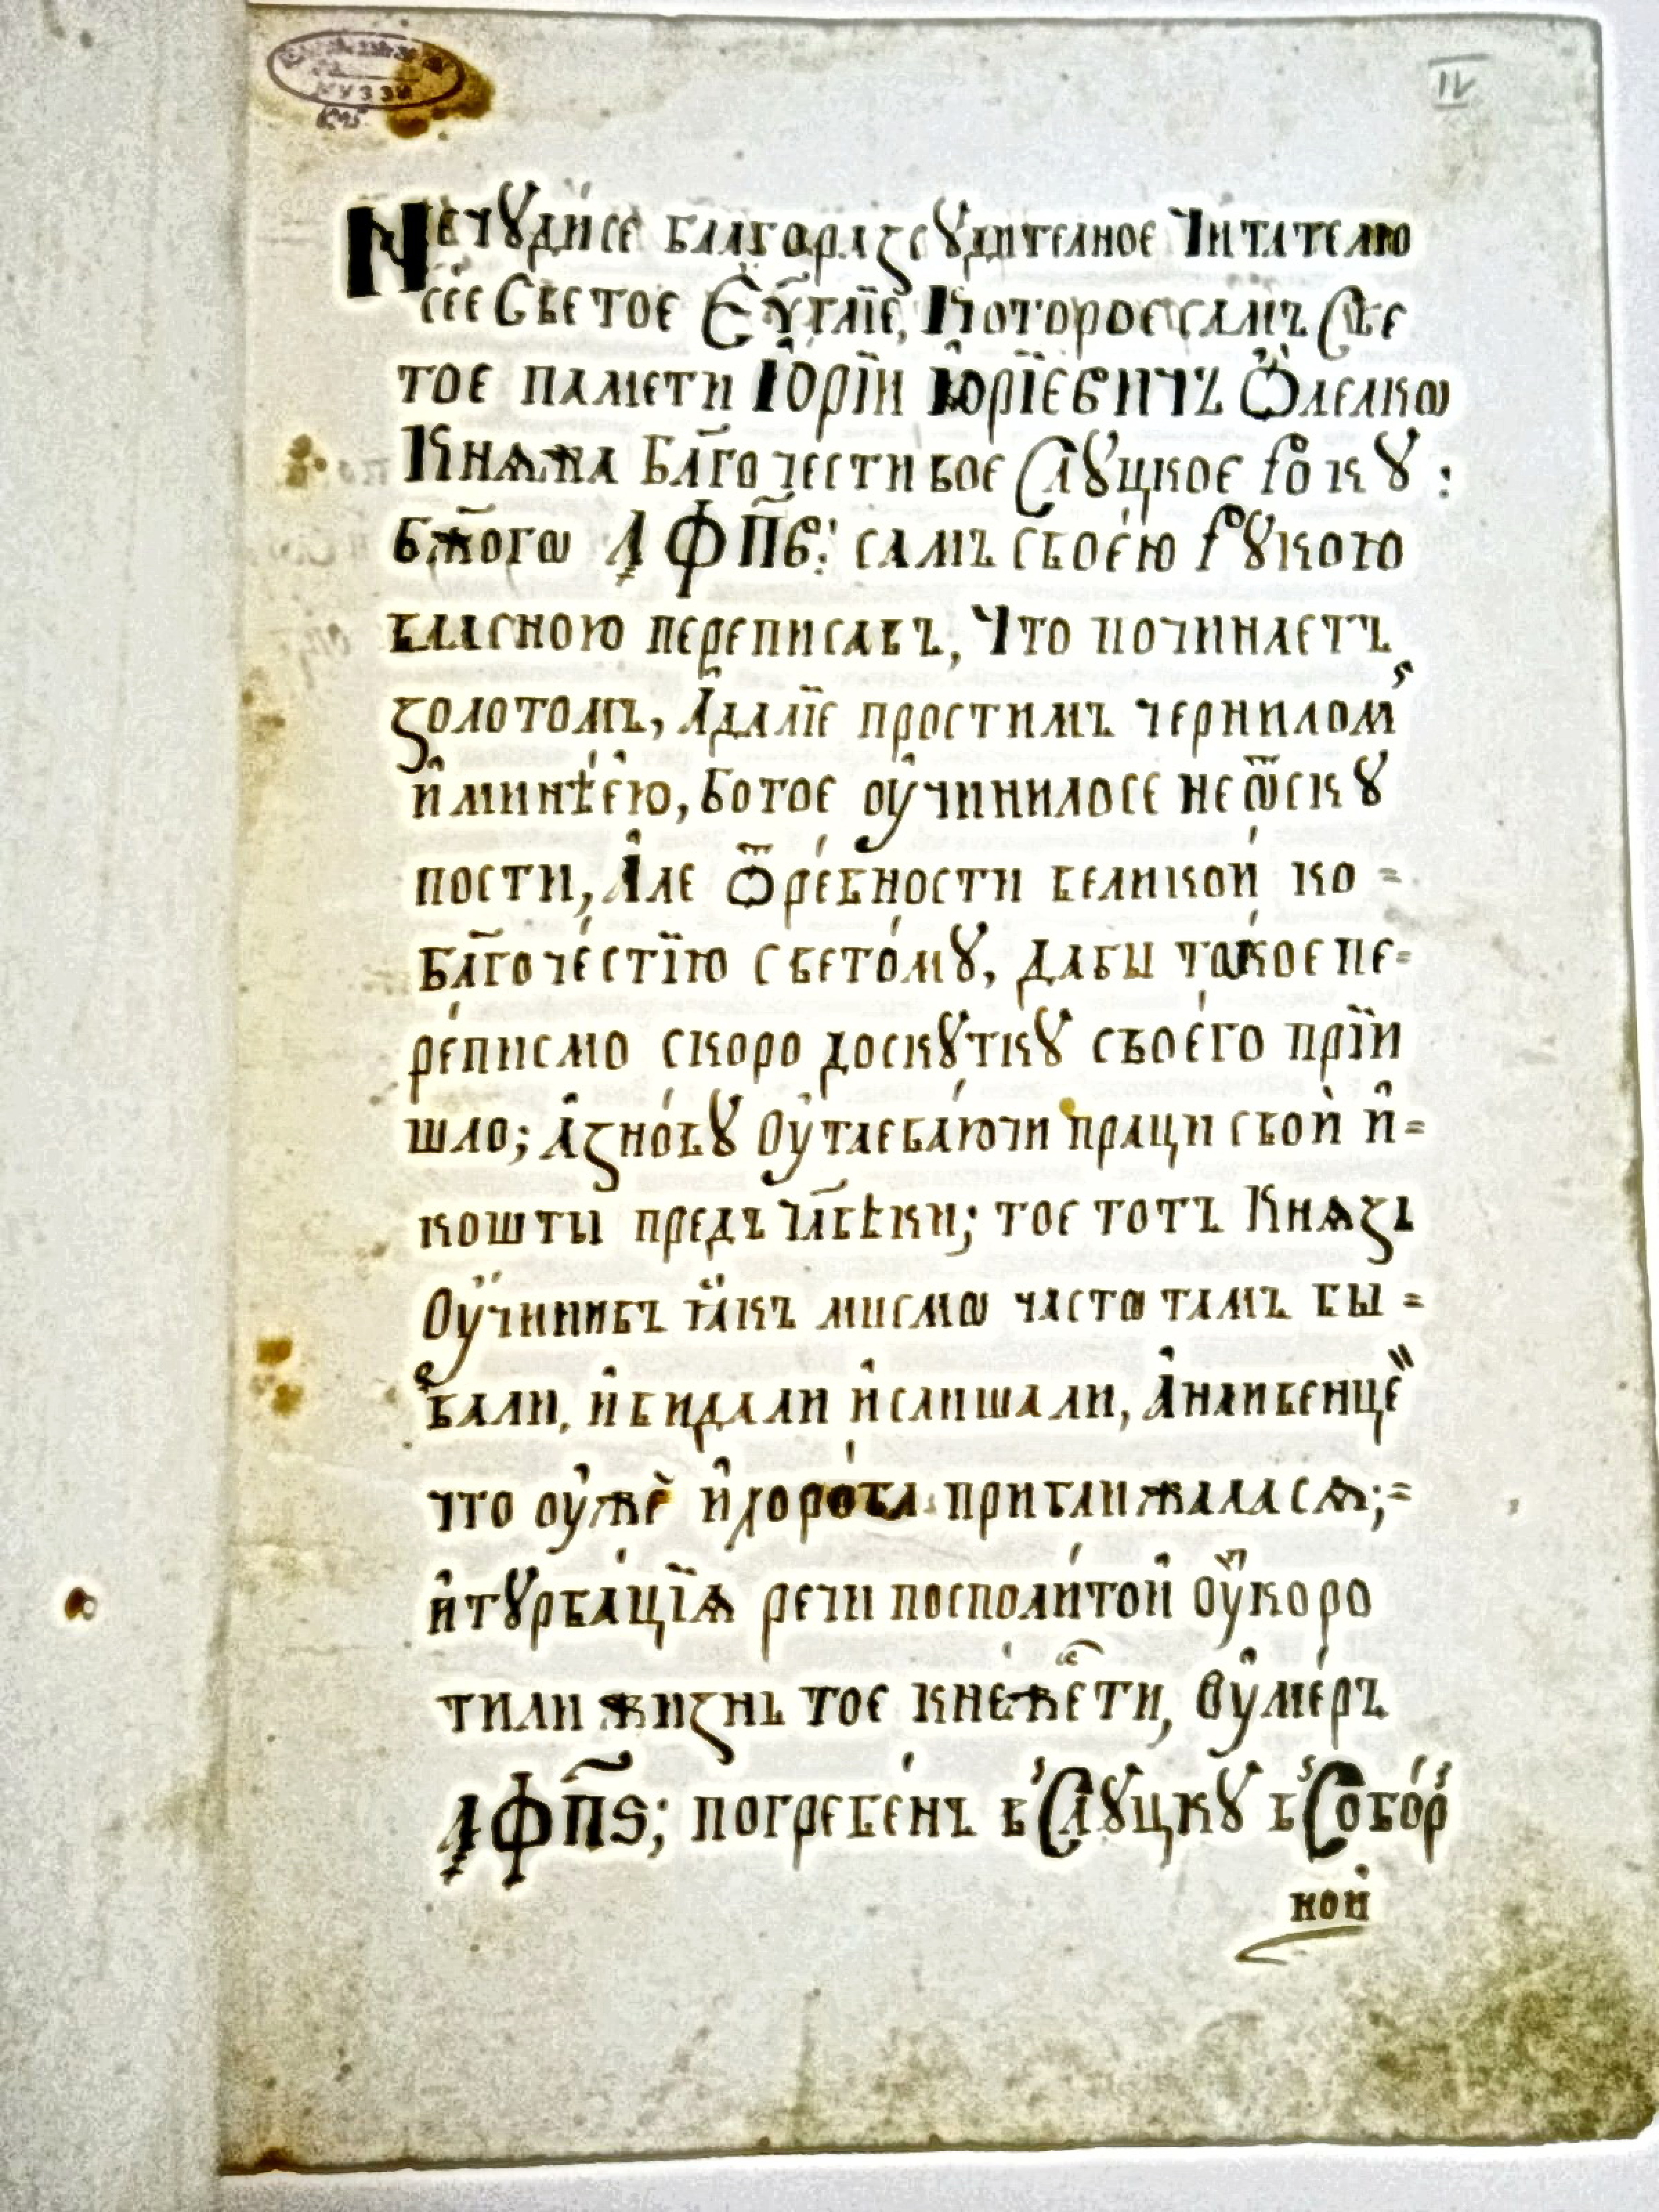 МУЗЭЙ
IV
Не чꙋдисе благоразсꙋдителное Читателю
сїе Светое Еѵ҃глїе, Которое самъ Све
тое памети Юрїй Юрїевичъ Ѻлелкѡ
Кнѧжа Бл҃гочестивое Слꙋцкое рокꙋ:
бж҃огѡ ҂АФП҃В: самъ своею рꙋкою
власною переписавъ, Что починаетъ
золотомъ, Адалїе простимъ чернилом
и минѣею, Бо тое оучинилосе не ѿ скꙋ
пости, Але ѿ ревности великой ко =
бл҃гочестїю светомꙋ, дабы такое пе=
реписмо скоро до скꙋткꙋ своего прїй
шло; А зновꙋ оутаеваючи праци свой и=
кошты предъ чл҃вѣки; тое тотъ Кнѧзь
оучинивъ такъ мисмѡ частѡ тамъ бы =
вали, и видали и слишали, А наивенце
что оуже и хороба приближаласѧ;=
и тꙋрбацїѧ речи посполитой оукоро
тили жизнь тое кнежети, Оумеръ
҂АФП҃Ѕ; погребенъ в Слꙋцкꙋ в Собор
ной